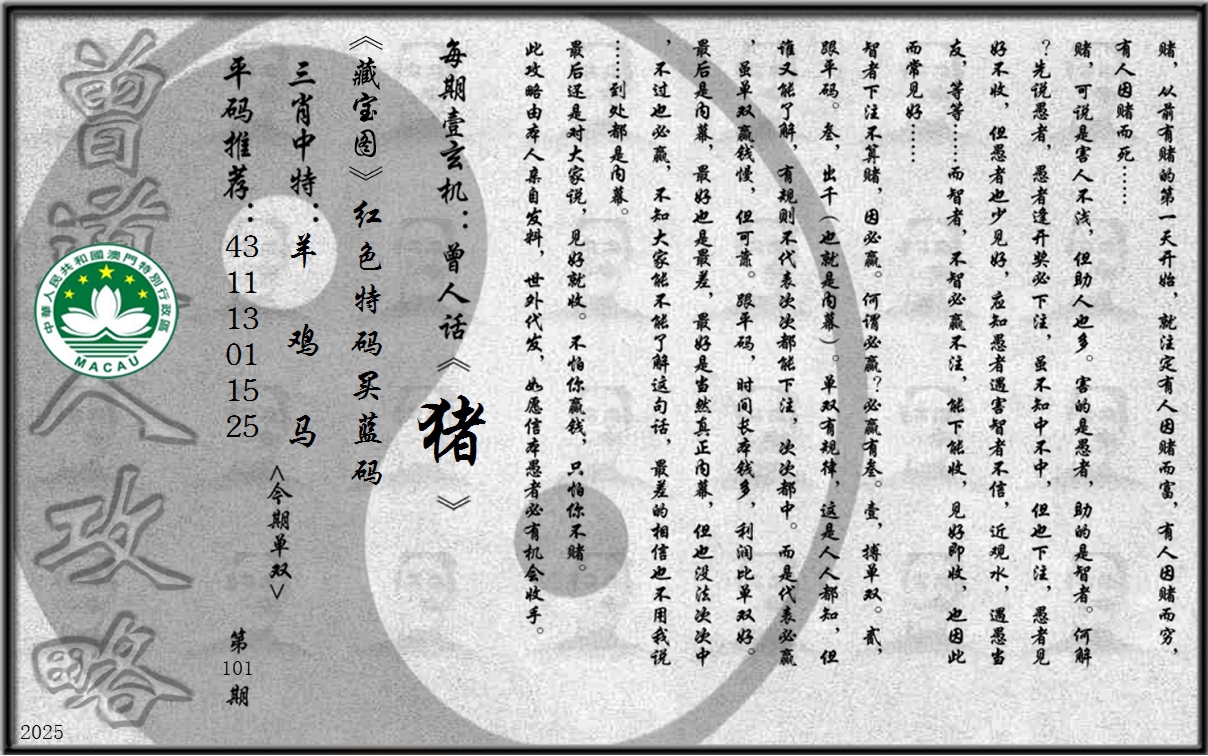 赌，从前有赌的第一天开始，就注定有人因赌而富，有人因赌而穷，
有人因赌而死……
赌，可说是害人不浅，但助人也多。害的是愚者，助的是智者。何解
？先说愚者，愚者逢开奖必下注，虽不知中不中，但也下注，愚者见
好不收，但愚者也少见好，应知愚者遇害智者不信，近观水，遇愚当
友，等等……而智者，不智必赢不注，能下能收，见好即收，也因此
而常见好……
智者下注不算赌，因必赢。何谓必赢？必赢有叁。壹，搏单双。贰，
跟平码。叁，出千（也就是内幕）。单双有规律，这是人人都知，但
谁又能了解，有规则不代表次次都能下注，次次都中。而是代表必赢
，虽单双赢钱慢，但可靠。跟平码，时间长本钱多，利润比单双好。
最后是内幕，最好也是最差，最好是当然真正内幕，但也没法次次中
，不过也必赢，不知大家能不能了解这句话，最差的相信也不用我说
……到处都是内幕。
最后还是对大家说，见好就收。不怕你赢钱，只怕你不赌。
此攻略由本人亲自发料，世外代发，如愿信本愚者必有机会收手。
每期壹玄机：曾人话《猪》
《藏宝图》红色特码买蓝码
三肖中特：羊 鸡 马
<今期单双>
平码推荐：43 11 13 01 15 25
第101期
曾道人攻略
中華人民共和國澳門特別行政區
MACAU
2025